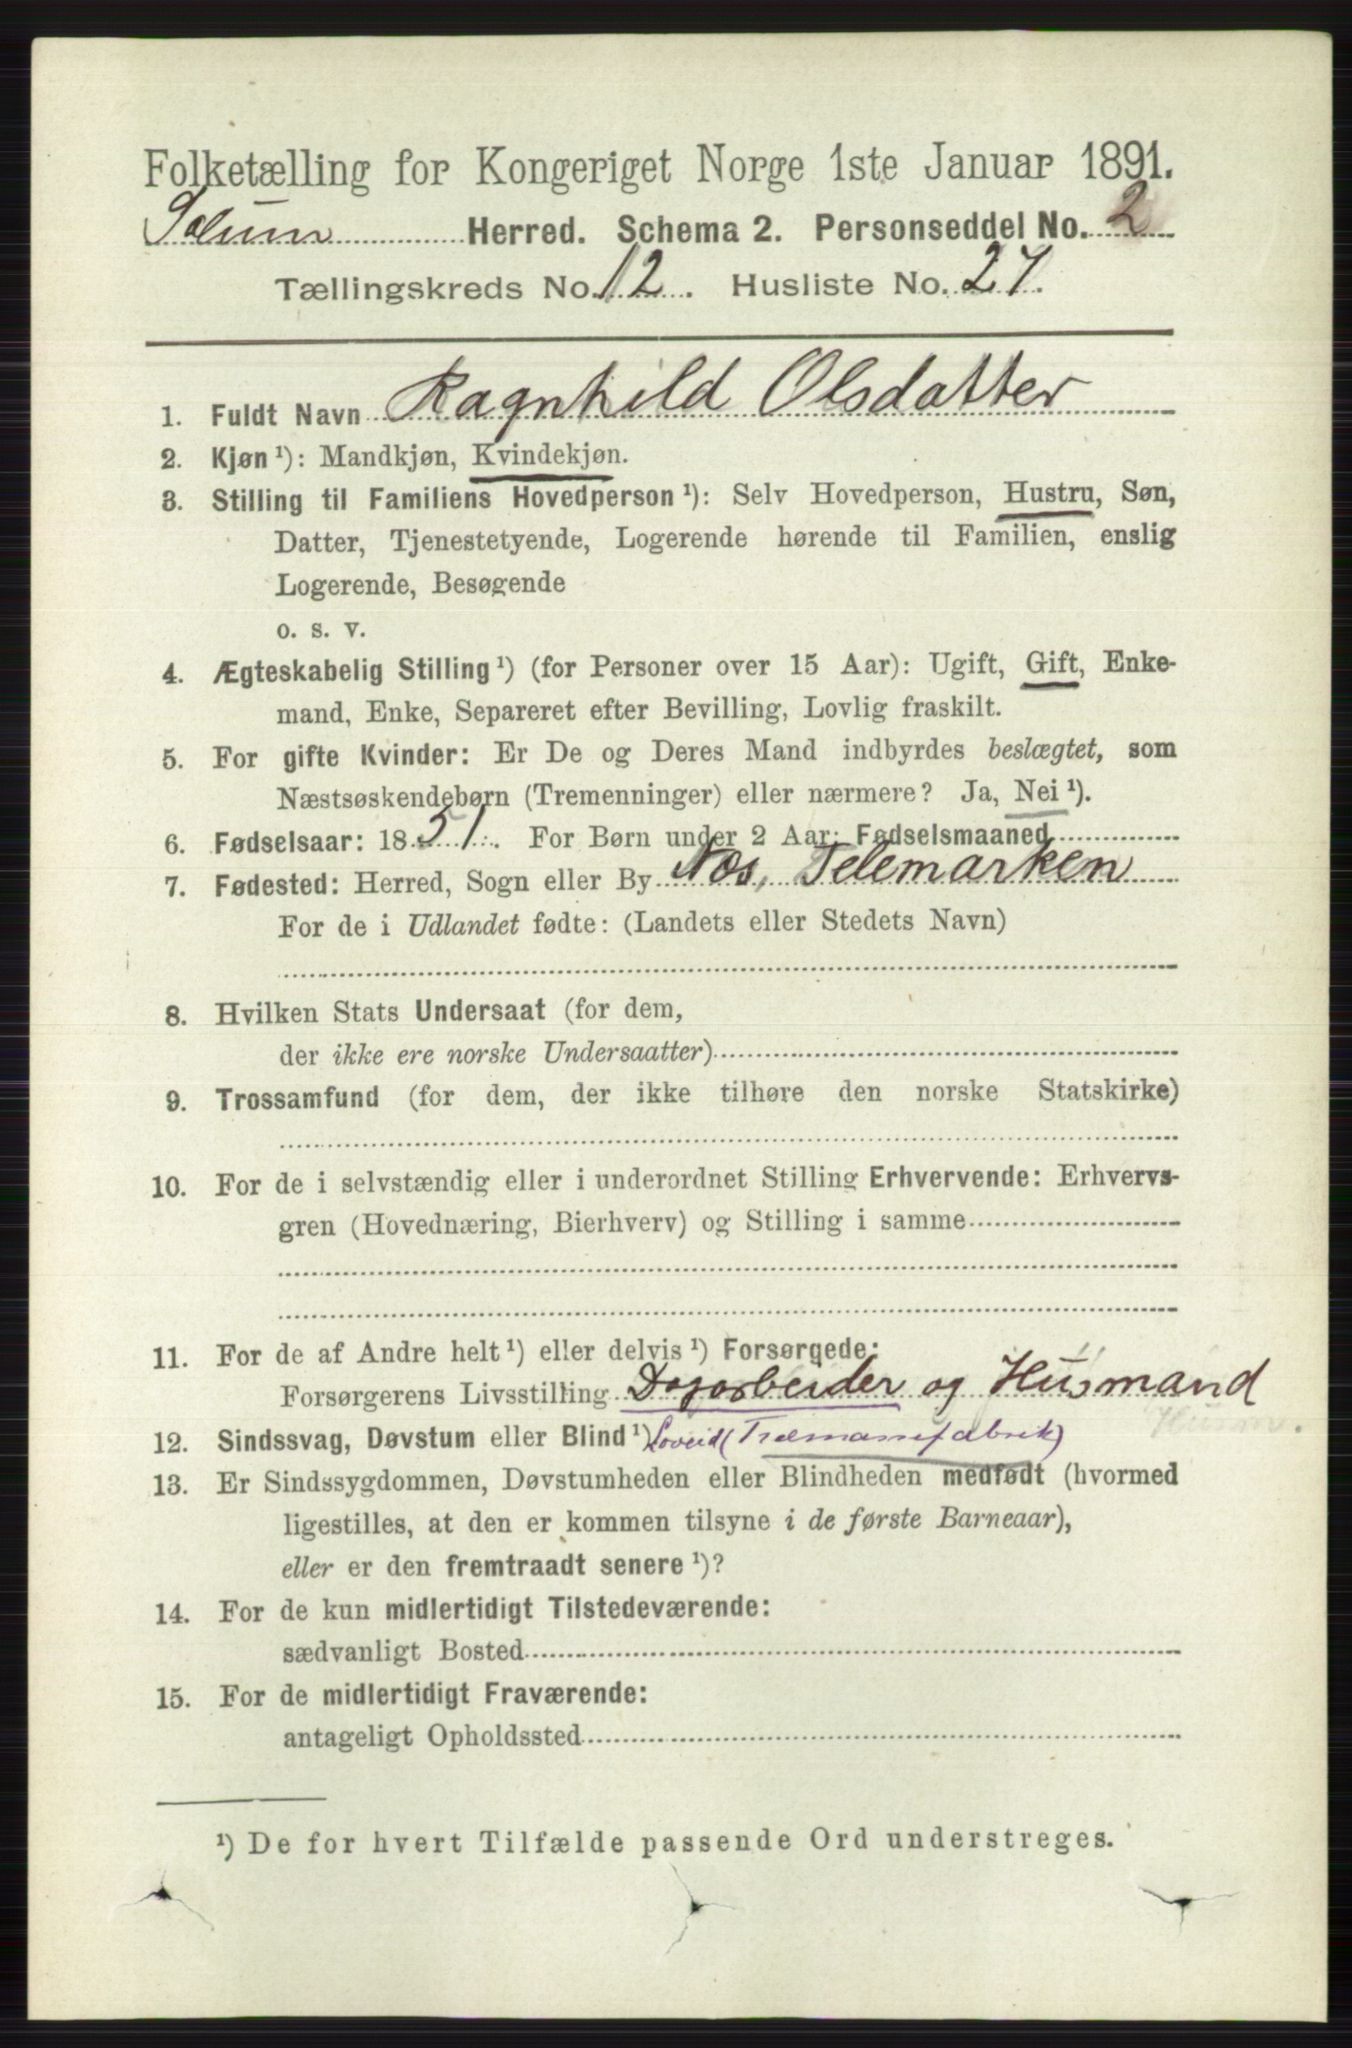 Folketælling for Kongeriget Norge 1ste Januar 1891.
Solum Herred. Schema 2. Personseddel No. 2
Tællingskreds No. 12. Husliste No. 27.
1. Fuldt Navn Ragnhild Olsdatter
2. Kjøn ¹): Mandkjøn, Kvindekjøn.
3. Stilling til Familiens Hovedperson ¹): Selv Hovedperson, Hustru, Søn,
Datter, Tjenestetyende, Logerende hørende til Familien, enslig
Logerende, Besøgende
o. s. v.
4. Ægteskabelig Stilling ¹) (for Personer over 15 Aar): Ugift, Gift, Enke-
mand, Enke, Separeret efter Bevilling, Lovlig fraskilt.
5. For gifte Kvinder: Er De og Deres Mand indbyrdes beslægtet, som
Næstsøskendebørn (Tremenninger) eller nærmere? Ja, Nei ¹).
6. Fødselsaar: 1851. For Børn under 2 Aar: Fødselsmaaned
7. Fødested: Herred, Sogn eller By Næs, Telemarken
For de i Udlandet fødte: (Landets eller Stedets Navn)
8. Hvilken Stats Undersaat (for dem,
der ikke ere norske Undersaatter)
9. Trossamfund (for dem, der ikke tilhøre den norske Statskirke)
10. For de i selvstændig eller i underordnet Stilling Erhvervende: Erhvervs-
gren (Hovednæring, Bierhverv) og Stilling i samme
11. For de af Andre helt ¹) eller delvis ¹) Forsørgede:
Forsørgerens Livsstilling Dagarbeider og Husmand
Husm.
12. Sindssvag, Døvstum eller Blind ¹) Løveid (Træmassefabrik)
13. Er Sindssygdommen, Døvstumheden eller Blindheden medfødt (hvormed
ligestilles, at den er kommen tilsyne i de første Barneaar),
eller er den fremtraadt senere ¹)?
14. For de kun midlertidigt Tilstedeværende:
sædvanligt Bosted
15. For de midlertidigt Fraværende:
antageligt Opholdssted
¹) De for hvert Tilfælde passende Ord understreges.